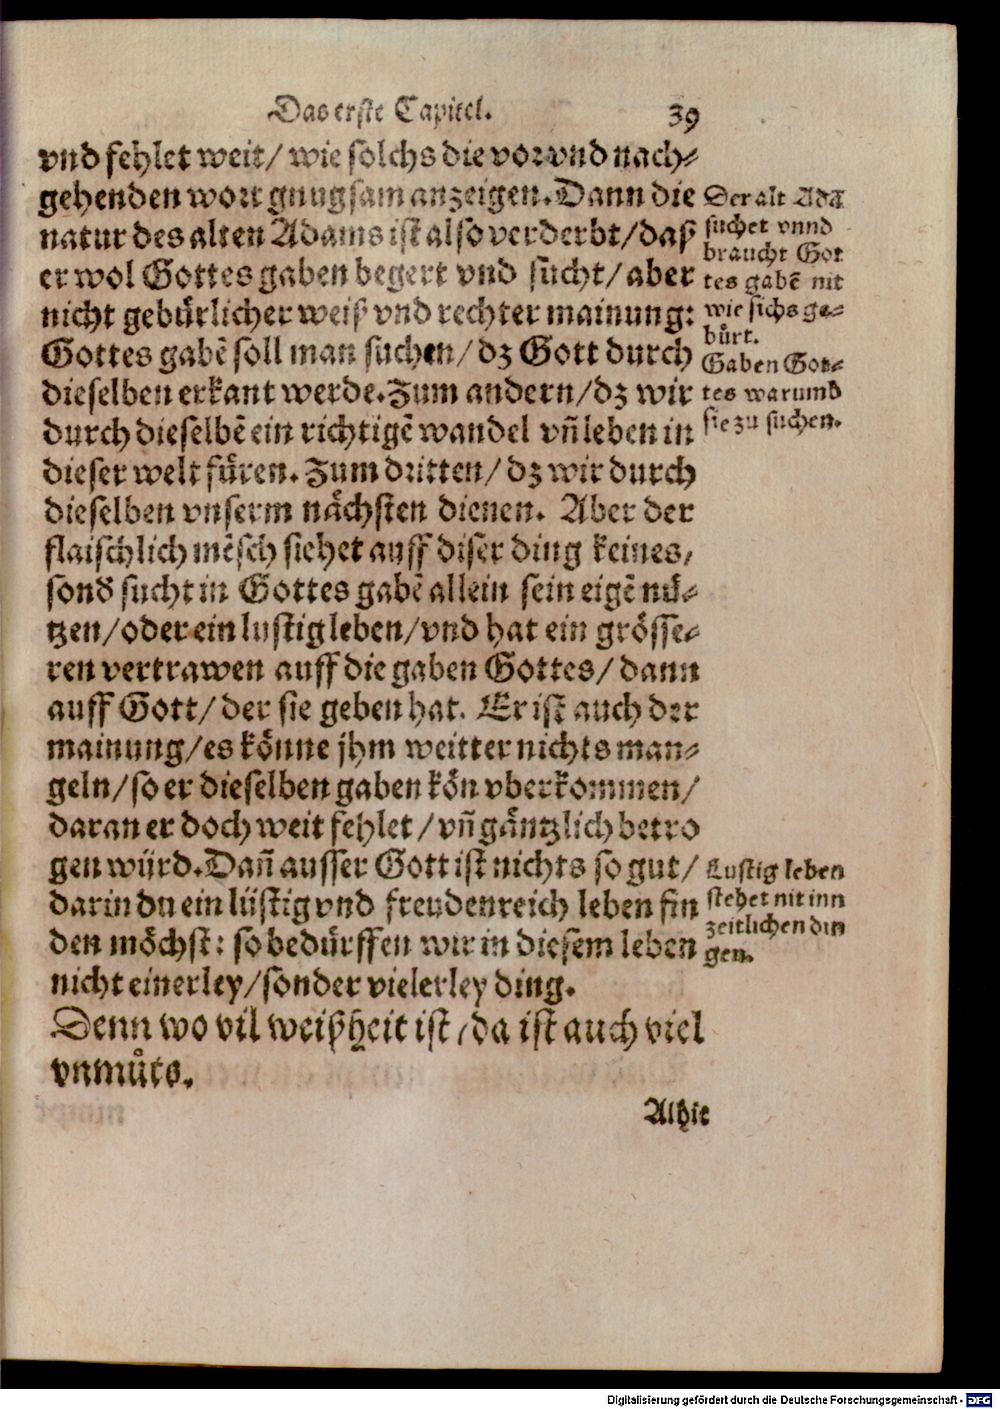 Das erste Capitel. 39
vnd fehlet weit/ wie solchs die vor vnd nach-
gehenden wort gnugsam anzeigen. Dann die
natur des alten Adams ist also verderbt/ daß
er wol Gottes gaben begert vnd sůcht/ aber
nicht gebůrlicher weiß vnd rechter mainung:
Gottes gabē soll man suchen/ dz Gott durch
dieselben erkant werde. Zum andern/ dz wir
durch dieselbē ein richtigē wandel vñ leben in
dieser welt fůren. Zum dritten/ dz wir durch
dieselben vnserm nächsten dienen. Aber der
flaischlich mēsch siehet auff diser ding keines/
sond' sucht in Gottes gabē allein sein eigē nů-
tzen/ oder ein lustig leben/ vnd hat ein grösse-
ren vertrawen auff die gaben Gottes/ dann
auff Gott/ der sie geben hat. Er ist auch der
mainung/ es könne jhm weitter nichts man-
geln/ so er dieselben gaben kön vberkommen/
daran er doch weit fehlet/ vñ gäntzlich betro
gen würd. Dañ ausser Gott ist nichts so gut/
darin du ein lüstig vnd freudenreich leben fin
den möchst: so bedůrffen wir in diesem leben
nicht einerley/ sonder vielerley ding.
Denn wo vil weißheit ist/ da ist auch viel
vnmůts.
Alhie
Der alt Adā
suchet vnnd
braucht Got
tes gabē nit
wie sichs ge-
bůrt.
Gaben Got-
tes warumb
sie zu suchen.
Lustig leben
stehet nit inn
zeitlichen din
gen.
Digitalisierung gefördert durch die Deutsche Forschungsgemeinschaft - DFG